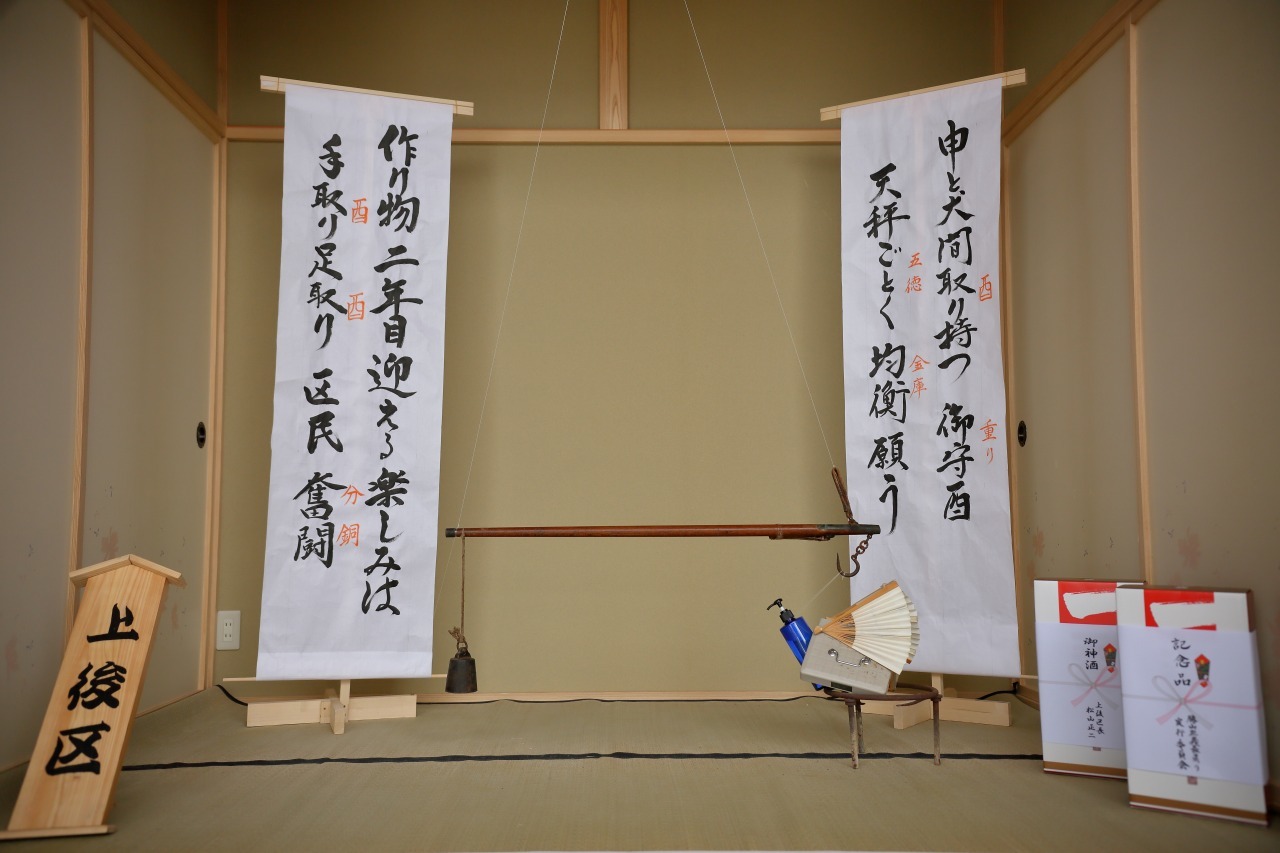 申と犬間取り持つ 御守酉
酉
重り
天秤ごとく 均衡願う
五徳
金庫
作り物 二年目迎える楽しみは
手取り足取り 区民 奮闘
酉
酉
分銅
上後区
御神酒
上後区長
松山正二
記念品
実行委員会